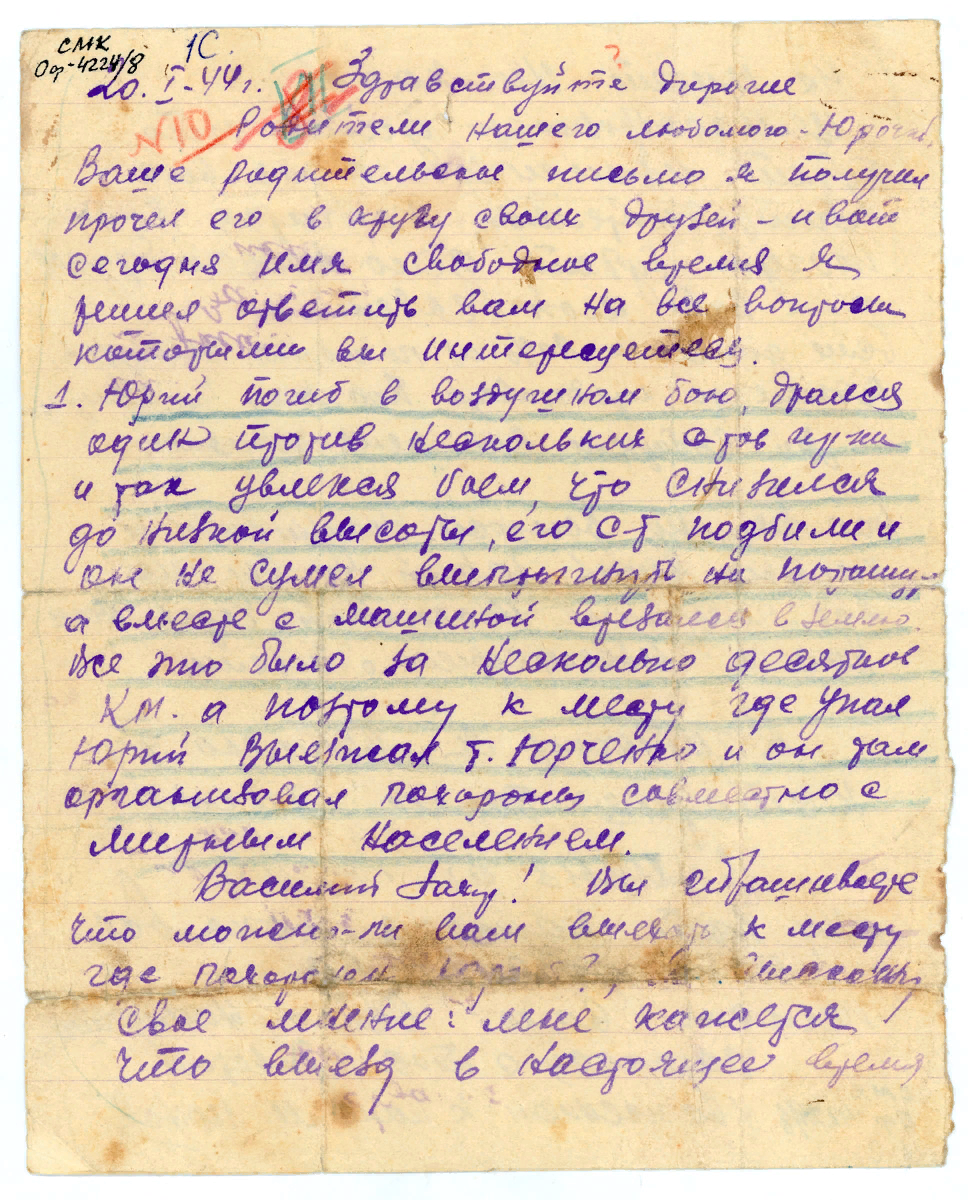 СМК
Оф-4224/8
1С.
20. I-44г. Здравствуйте дорогие
?
N10
Родители нашего любимого - Юрочки,
Ваше родительское письмо я получил
прочел его в кругу своих друзей - и вот
сегодня имея свободное время я
решил ответить вам на все вопросы
которыми вы интересуетесь.
1. Юрий погиб в воздушном бою, дрался
один против нескольких
и так увлекся боем, что снизился
до низкой высоты, его ст подбили и
он не сумел выпрыгнуть на парашу-
а вместе с машиной врезался в землю.
Все это было за несколько десятков
км. а поэтому к месту где упал
Юрий выезжал т. Юрченко и он там
организовал похороны совместно с
мирным населением.
Василий Зах.! Вы спрашиваете
что можно-ли вам выехать к месту
где похоронен Юрий?,
свое мнение: мне кажется
что выезд в настоящее время